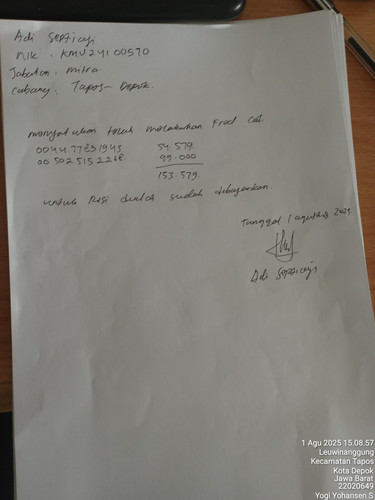 Adi Septiaji
Nik : KMV24100570
Jabatan : mitra
Cabang : Tapos - Depok
menyatakan telah melakukan Frod COD
004477891945 54.579
005025152268 99.000
153.579
untuk Resi diatas sudah dibayarkan.
Tanggal 1 agustus 2025
Adi Septiaji
1 Agu 2025 15.08.57
Leuwinanggung
Kecamatan Tapos
Kota Depok
Jawa Barat
22020649
Yogi Yohansen S